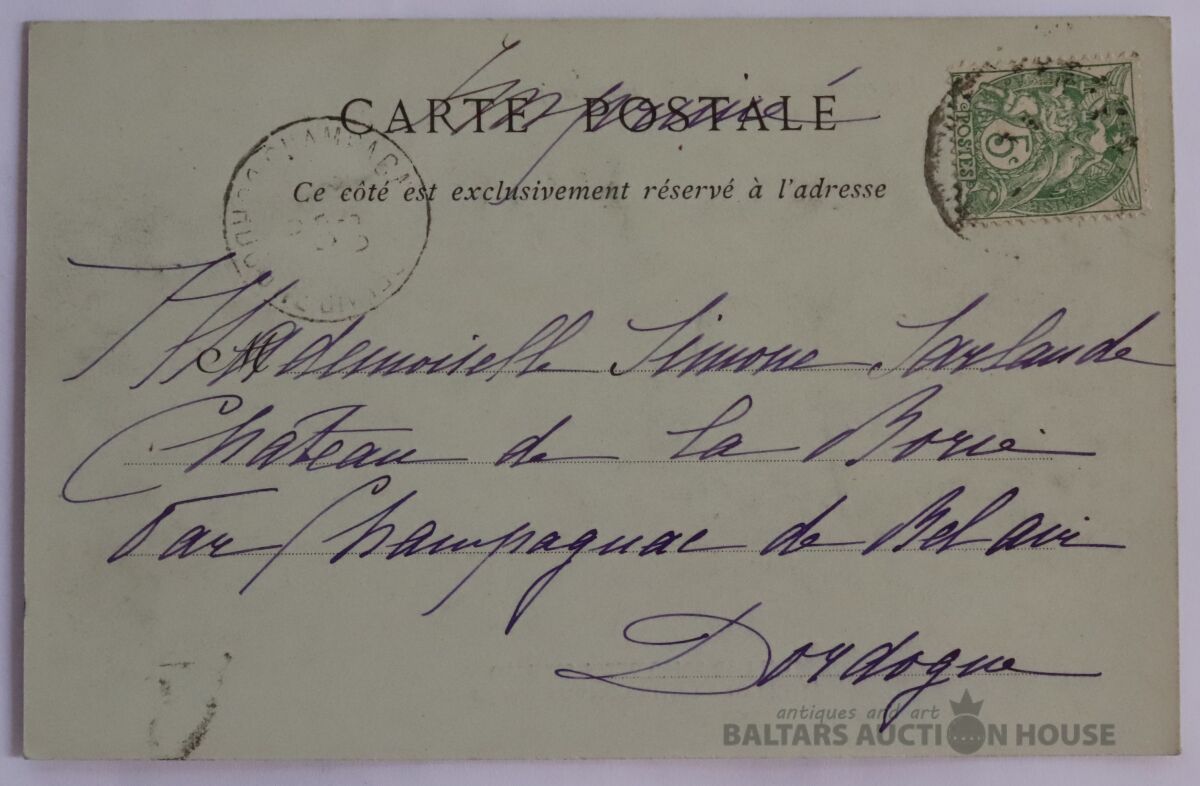 Imprimé
CARTE POSTALE
Ce côté est exclusivement réservé à l'adresse
POSTES
5c
Mademoiselle Simone Sarlande
Château de la Borie
Par Champagnac de Bel air
Dordogne
antiques and art
BALTARS AUCTION HOUSE